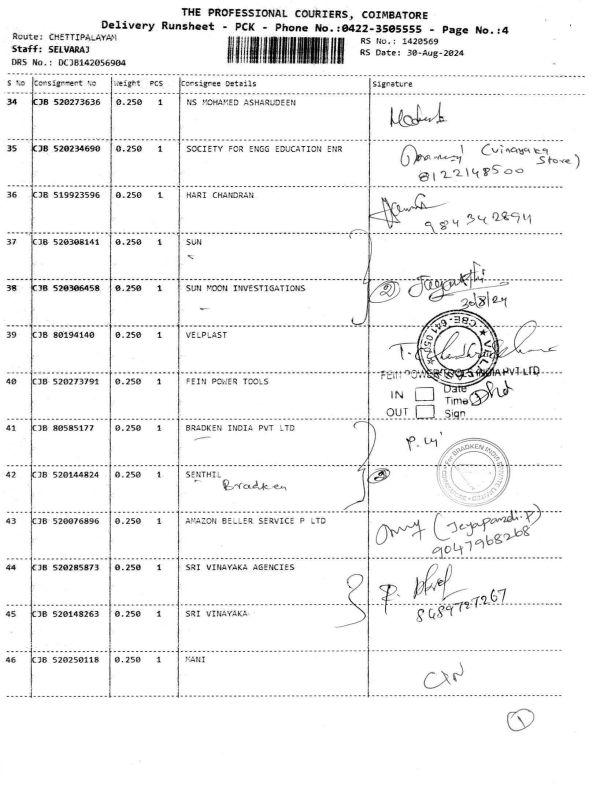 THE PROFESSIONAL COURIERS, COIMBATORE
Delivery Runsheet - PCK - Phone No.:0422-3505555 - Page No.:4
Route: CHETTIPALAYAM
RS No.: 1420569
Staff: SELVARAJ
RS Date: 30-Aug-2024
DRS No.: DCJB142056904
S No Consignment No Weight PCS Consignee Details Signature
34 CJB 520273636 0.250 1 NS MOHAMED ASHARUDEEN
35 CJB 520234690 0.250 1 SOCIETY FOR ENGG EDUCATION ENR (Vinayaka Store)
8122148500
36 CJB 519923596 0.250 1 HARI CHANDRAN
984342894
37 CJB 520308141 0.250 1 SUN
38 CJB 520306458 0.250 1 SUN MOON INVESTIGATIONS 2 Jayanthi
30/8/24
39 CJB 80194140 0.250 1 VELPLAST
40 CJB 520273791 0.250 1 FEIN POWER TOOLS FEIN POWER TOOLS INDIA PVT LTD
IN Date
Time
OUT Sign
41 CJB 80585177 0.250 1 BRADKEN INDIA PVT LTD
For BRADKEN INDIA PRIVATE LIMITED
42 CJB 520144824 0.250 1 SENTHIL
Bradken
43 CJB 520076896 0.250 1 AMAZON BELLER SERVICE P LTD (Jeyapandi.P)
9047968268
44 CJB 520285873 0.250 1 SRI VINAYAKA AGENCIES
8489727267
45 CJB 520148263 0.250 1 SRI VINAYAKA
46 CJB 520250118 0.250 1 MANI
1